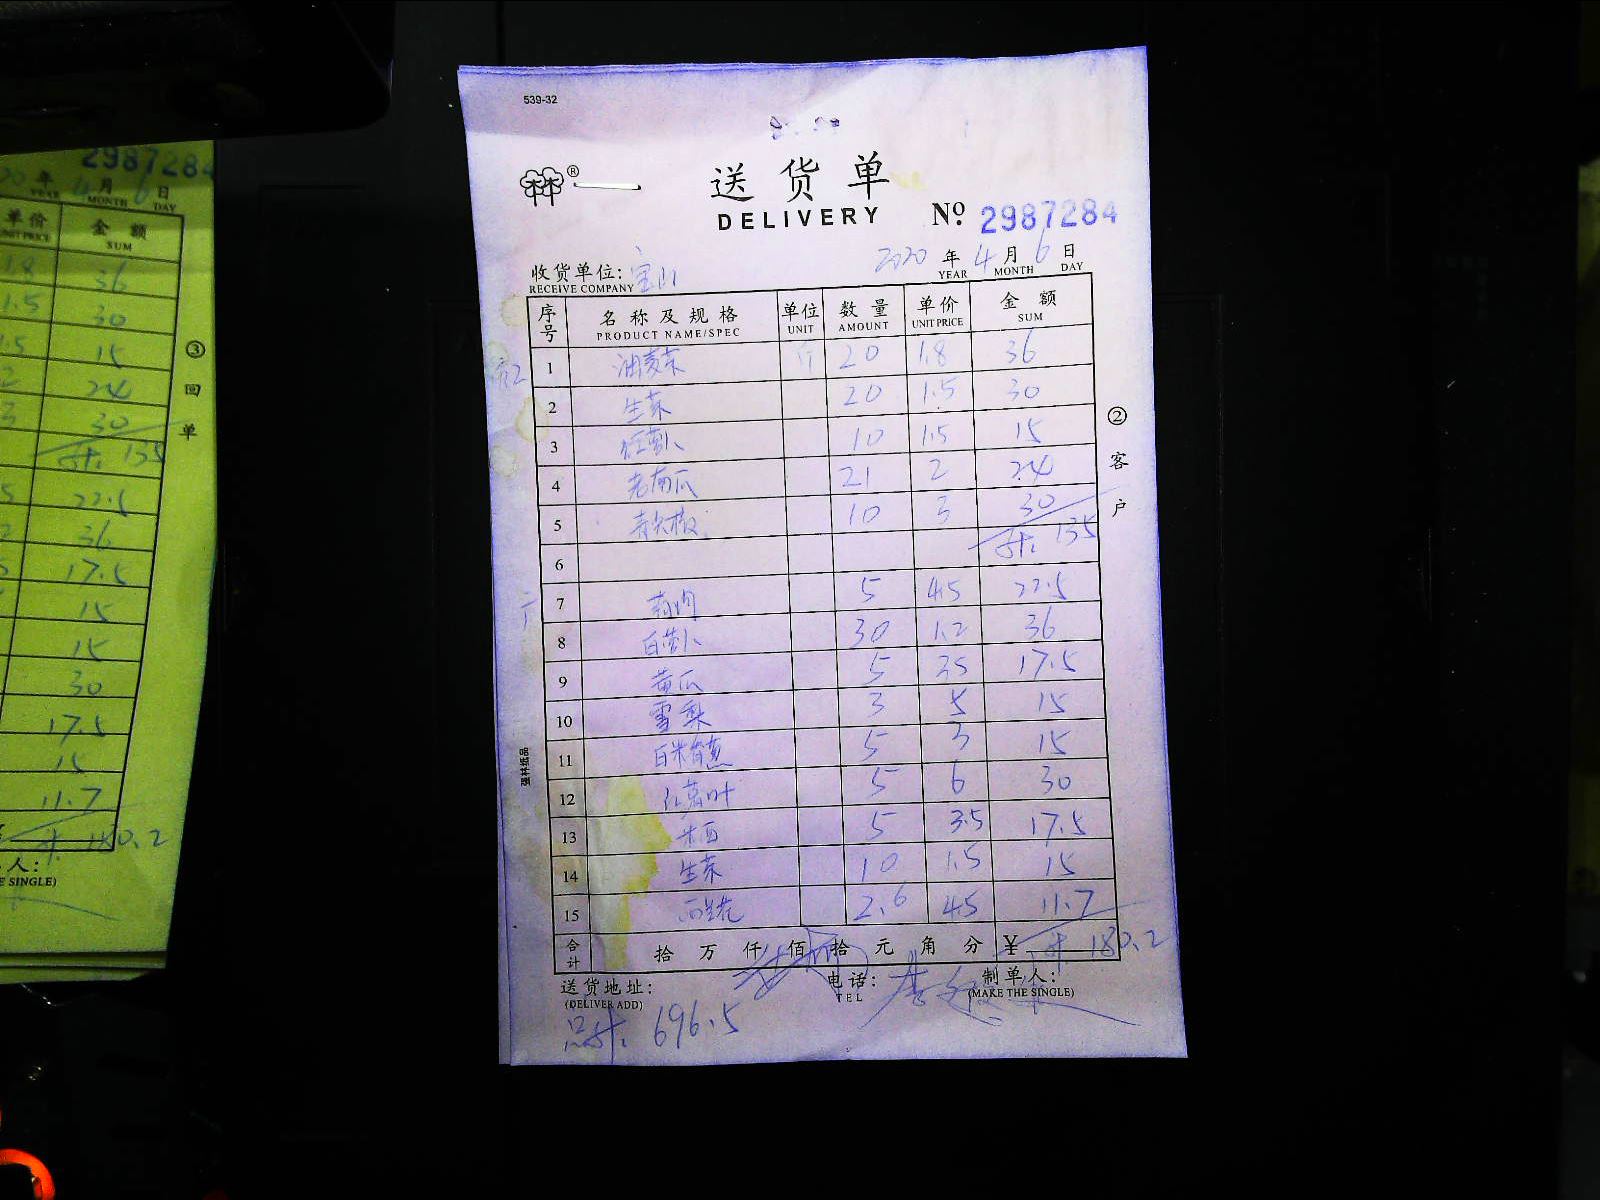 539-32
送货单
DELIVERY
№ 2987284
2020 年 4 月 6 日
YEAR MONTH DAY
收货单位: 宝山
RECEIVE COMPANY
序号 名称及规格 单位 数量 单价 金额
PRODUCT NAME/SPEC UNIT AMOUNT UNIT PRICE SUM
1 油麦菜 斤 20 1.8 36
2 生菜 20 1.5 30
3 红萝卜 10 1.5 15
4 老南瓜 21 2 24
5 青尖椒 10 3 30
6 计: 135
7 5 4.5 22.5
8 白萝卜 30 1.2 36
9 黄瓜 5 3.5 17.5
10 雪梨 3 5 15
11 5 3 15
12 5 6 30
13 5 3.5 17.5
14 生菜 10 1.5 15
15 西兰花 2.6 4.5 11.7
合计 拾 万 仟 佰 拾 元 角 分 ¥ 计 180.2
送货地址: 电话: 制单人:
(DELIVER ADD) TEL (MAKE THE SINGLE)
总计: 696.5
② 客户
强林纸品
2987284
年 4 月 6 日
YEAR MONTH DAY
单价 金额
UNIT PRICE SUM
1.8 36
1.5 30
1.5 15
2 24
3 30
计: 135
22.5
36
17.5
15
15
30
17.5
15
11.7
计 180.2
人:
E SINGLE)
③ 回单